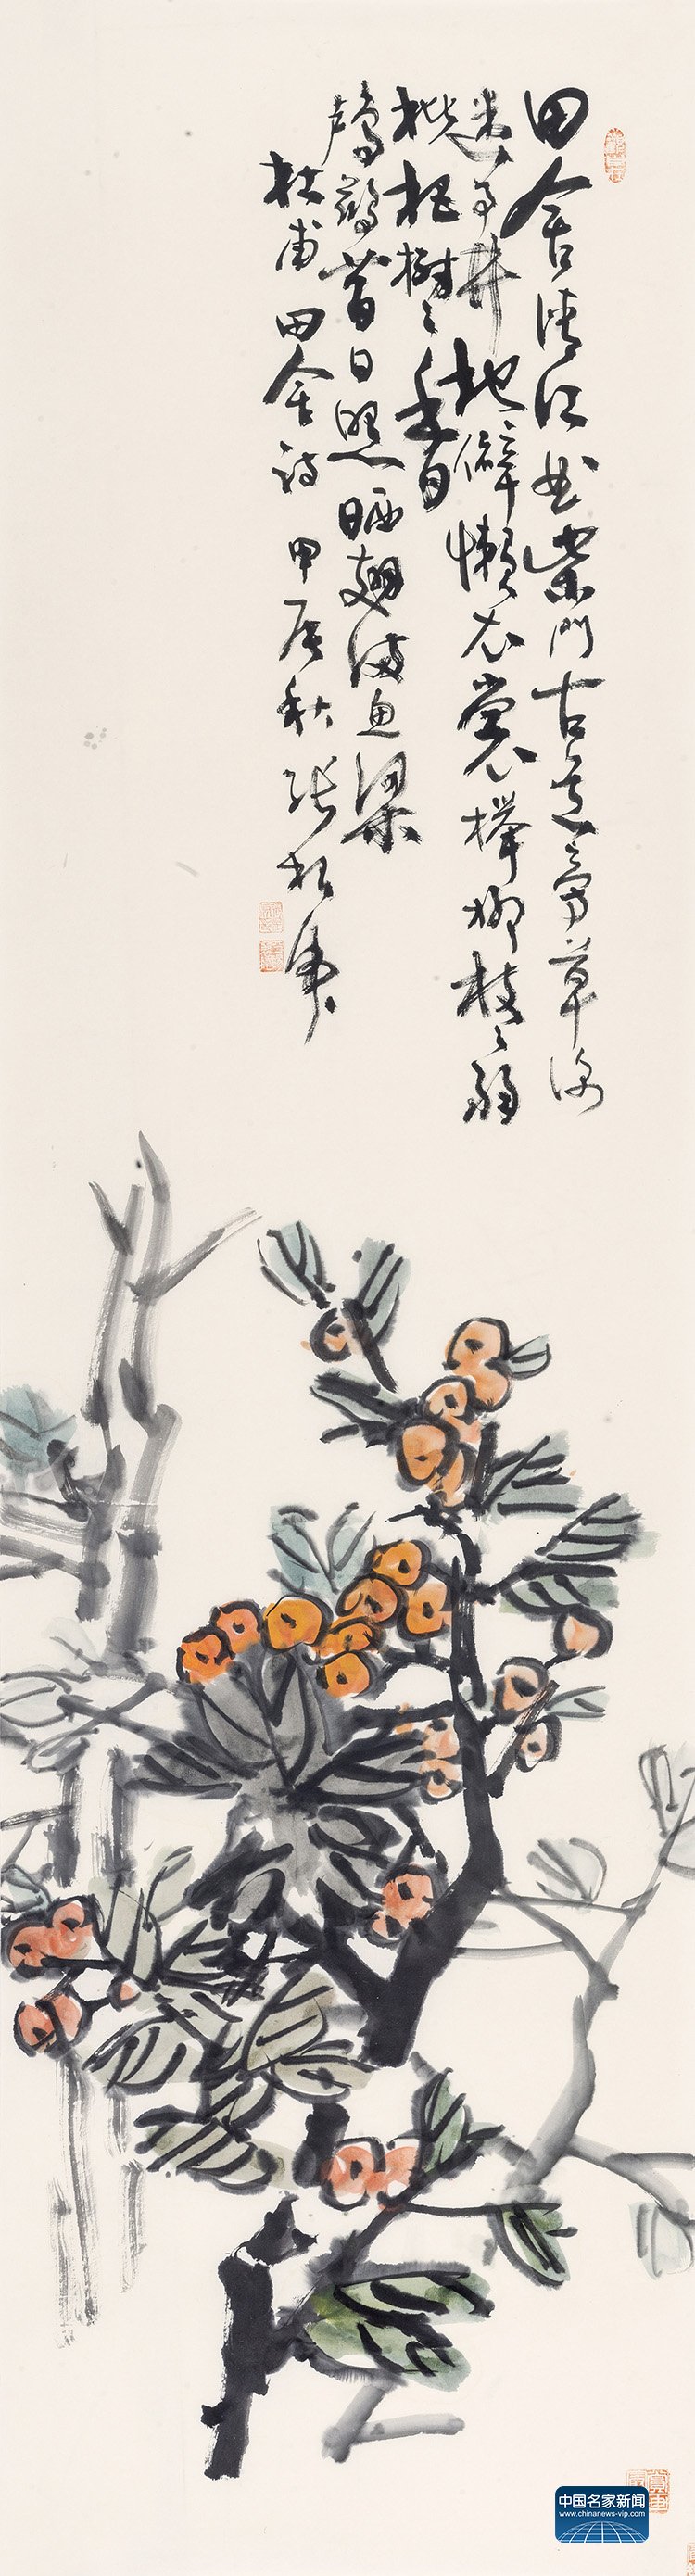 田舍清江曲柴門古道旁草深
迷市井地僻懶衣裳櫸柳枝々弱
枇杷樹々香
鸕鶿昔日照晒翅滿魚梁
杜甫田舍詩 甲辰秋 張
中国名家新闻
www.chinanews-vip.com